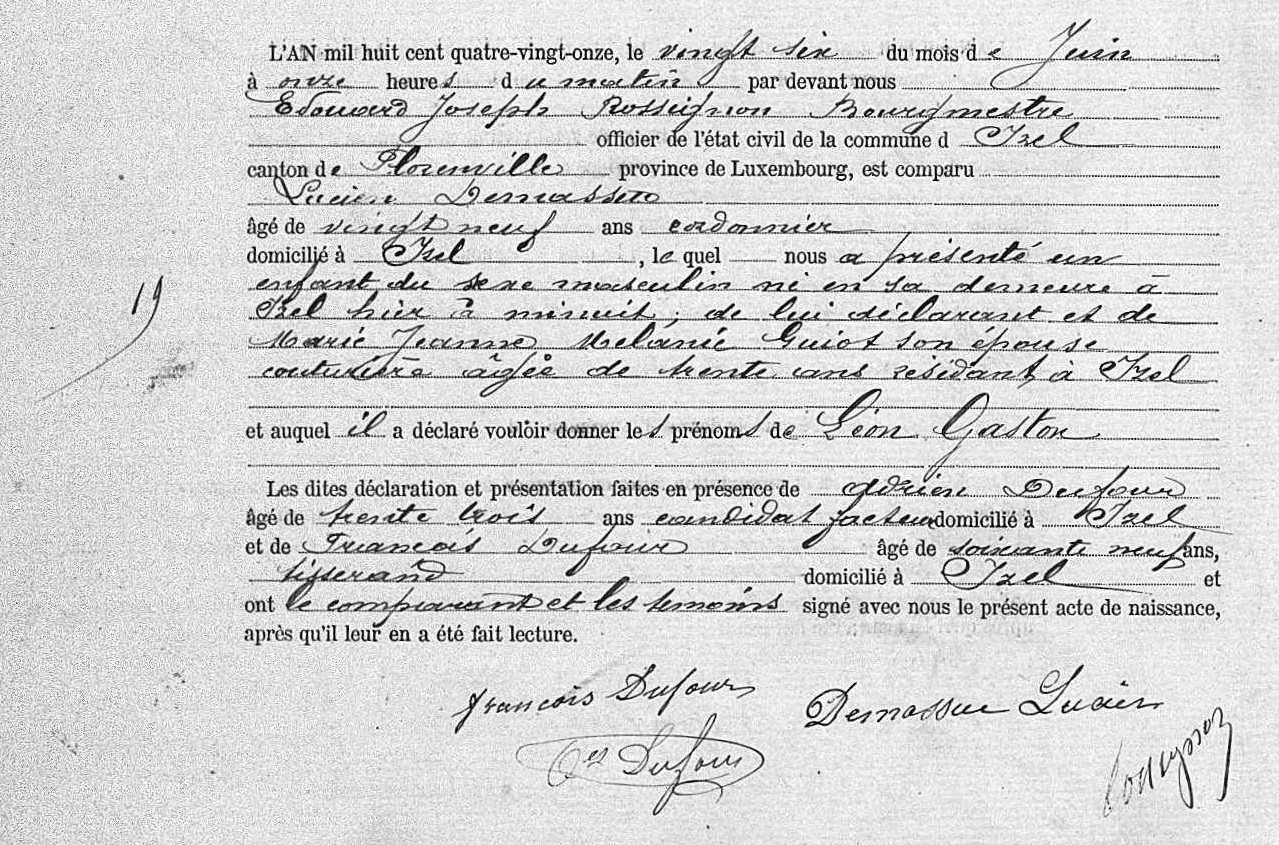 L'AN mil huit cent quatre-vingt-onze, le vingt six du mois de Juin
à onze heures du matin par devant nous
Edouard Joseph Rossignon Bourgmestre
officier de l'état civil de la commune d Izel
canton de Florenville province de Luxembourg, est comparu
Lucien Demasseu
âgé de vingt neuf ans cordonnier
domicilié à Izel, le quel nous a présenté un
enfant du sexe masculin né en sa demeure à
19
Izel hier à minuit, de lui déclarant et de
Marie Jeanne Mélanie Guiot son épouse
couturière âgée de trente ans résidant à Izel
et auquel il a déclaré vouloir donner les prénoms de Léon Gaston
Les dites déclaration et présentation faites en présence de Adrien Dufour
âgé de trente trois ans candidat facteur domicilié à Izel
et de François Dufour âgé de soixante neuf ans,
tisserand domicilié à Izel et
ont le comparant et les témoins signé avec nous le présent acte de naissance,
après qu'il leur en a été fait lecture.
François Dufour Demasseu Lucien
Dufour Rossignon